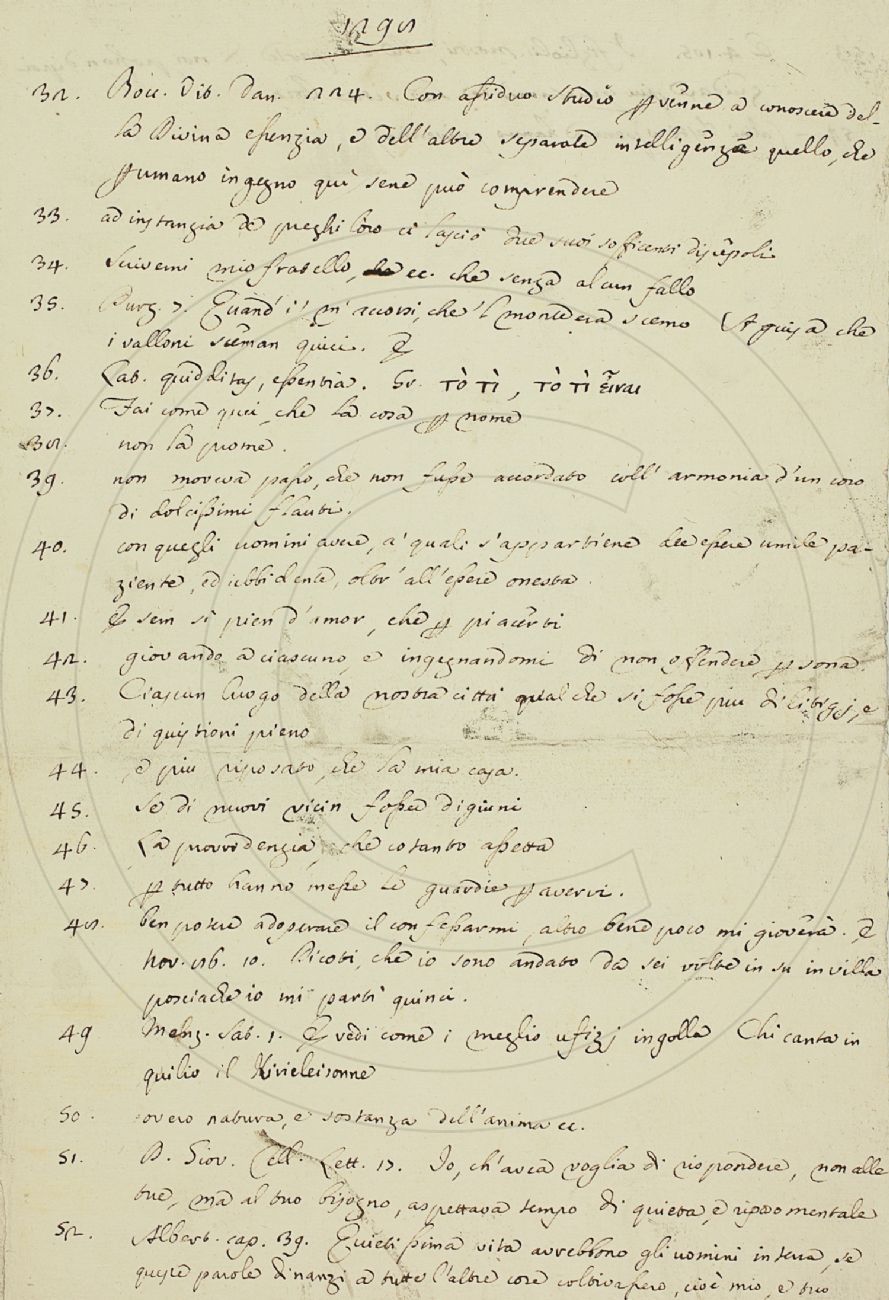 1298
32. Bocc. Vit. Dan. 224. Con assiduo studio pvenne a conoscere del-
la Divina essenzia, e dell'altre separate intelligenze quello, che
p umano ingegno quì sene può comprendere
33. ad instanzia de' preghi loro ci lasciò due suoi sofficenti discepoli
34. Scivemi mio fratello, ec. che senza alcun fallo
35. Purg. 7. Quand' i' m' accorsi, che 'l monte era scemo A guisa che
i valloni sceman quici. E
36. Lat. quidditas, essentia. Gr. τὸ τὶ, τὸ τὶ εἶναι
37. Fai come quei, che la cosa p nome
38. non la prome.
39. non moveva passo, che non fusse accordato coll' armonia d'un coro
di dolcissimi flauti.
40. con quegli uomini avere, a' quali s'appartiene dee essere umile pa-
ziente, ed ubbidente, oltr' all'essere onesta.
41. E sem sì pien d'amor, che p piacerti
42. giovando a ciascuno, e ingegnandomi di non offendere psona.
43. Ciascun luogo della nostra città qual che si fosse più di litigj, e
di quistioni pieno
44. è più riposato, che la mia casa.
45. Se di nuovi vicin fosser digiuni
46. La provvidenzia, che cotanto assetta
47. p tutto hanno messe le guardie p avervi.
48. ben potere adoperare il confessarmi, altro bene poco mi gioverà. E
nov. 86. 10. Dicoti, che io sono andato da sei volte in su in villa
posciachè io mi partì quinci.
49 Menz. Sat. 1. E vedi come i meglio ufizj ingolla Chi canta in
quilio il Kirieleisonne
50. overo natura, e sostanza dell'anima ec.
51. B. Giov. Cell. Lett. 17. Io, ch'avea voglia di rispondere, non alle
tue, ma al tuo bisogno, aspettava tempo di quieta, e riposo mentale
52. Albert. cap. 39. Quietissima vita avrebbono gli uomini in terra, se
queste parole dinanzi a tutte l'altre cose coltivassero, cioè mio, e tuo